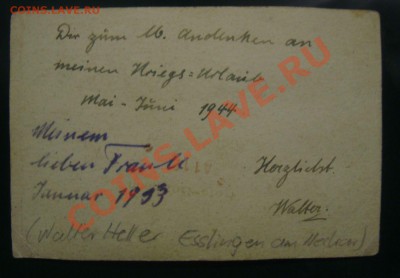 COINS.LAVE.RU
Dir zum lb. Andenken an
meinen Kriegs=Urlaub
Mai - Juni 1944
Meinem
lieben
Januar 1953
Herzlichst
Walter.
(Walter Heller Esslingen am Neckar)
COINS.LAVE.RU